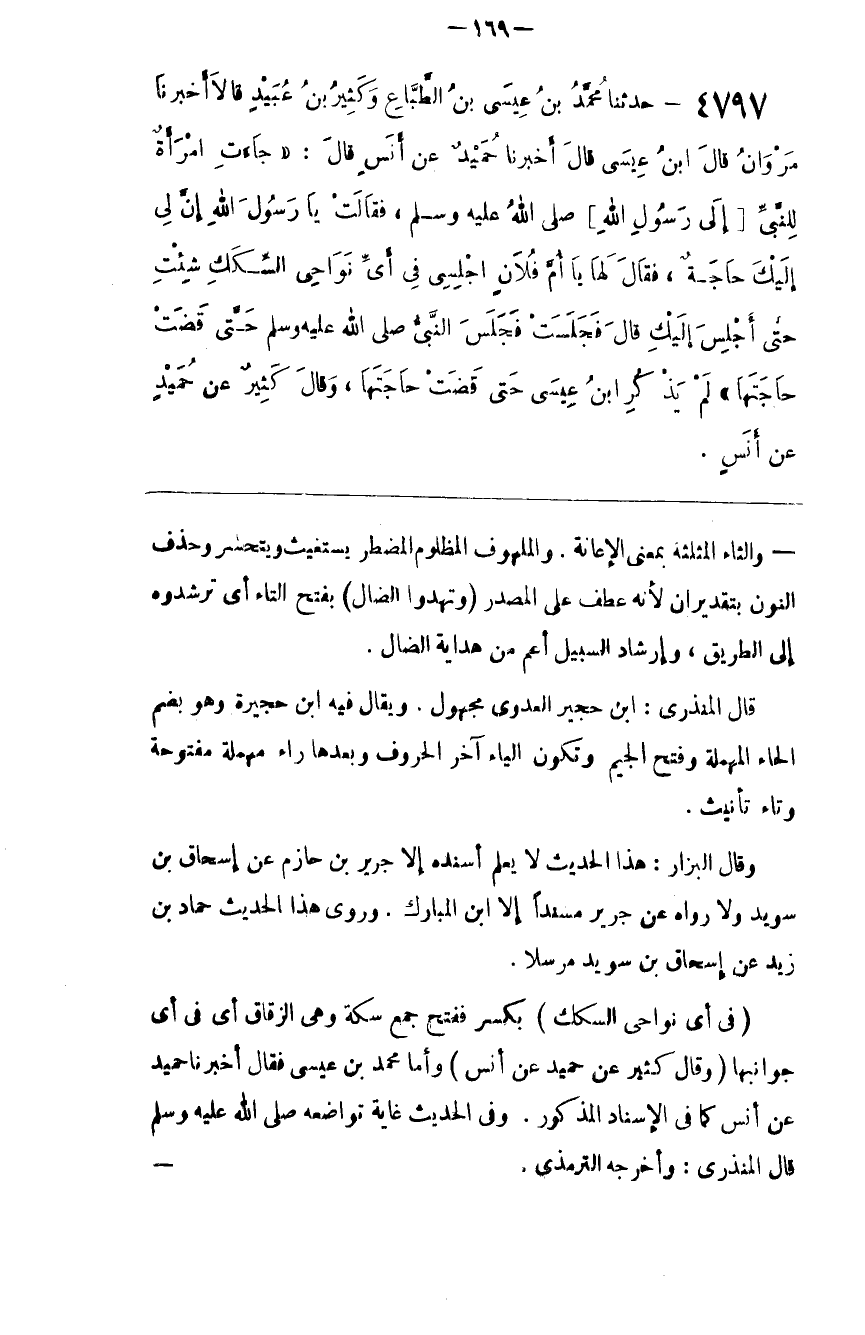 — ١٦٩ —
٤٧٩٧ — حدثنا مُحَمَّدُ بنُ عِيسَى بنُ الطَّبَّاعِ وَكَثِيرُ بنُ عُبَيْدٍ قالاَ أَخبرنا
مَرْوَانُ قالَ ابنُ عِيسَى قالَ أَخبرنا حُمَيْدٌ عن أَنَسٍ قالَ : « جاءَتِ امْرَأَةٌ
لِلنَّبِيِّ [ إلَى رَسُولِ اللهِ ] صلى اللهُ عليه وسلم ، فقالَتْ ياَ رَسُولَ اللهِ إنَّ لِي
إلَيْكَ حاَجَةٌ ، فقالَ لَهاَ ياَ أُمَّ فُلاَنٍ اجْلِسِي فِي أَىِّ نَوَاحِى السِّكَكِ شِئْتِ
حتَّى أَجْلِسَ إلَيْكِ قالَ فَجَلَسَتْ فَجَلَسَ النَّبيُّ صلى الله عليه وسلم حَتَّى قَضَتْ
حاَجَتَهاَ » لَمْ يَذْكُرِ ابنُ عِيسَى حَتى قَضَتْ حاَجَتَهاَ ، وَقالَ كَثِيرٌ عن حُمَيْدٍ
عن أَنَسٍ .
— والثاء المثلثة بمعنى الإعانة . والملهوف المظلوم المضطر يستغيث ويتحسر وحذف
النون بتقدير ان لأنه عطف على المصدر ( وتهدوا الضال ) بفتح التاء أى ترشدوه
إلى الطريق ، وإرشاد السبيل أعم من هداية الضال .
قال المنذرى : ابن حجير العدوى مجهول . ويقال فيه ابن حجيرة وهو بضم
الحاء المهملة وفتح الجيم وتكون الياء آخر الحروف وبعدها راء مهملة مفتوحة
وتاء تأنيث .
وقال البزار : هذا الحديث لا يعلم أسنده إلا جرير بن حازم عن إسحاق بن
سويد ولا رواه عن جرير مسنداً إلا ابن المبارك . وروى هذا الحديث حماد بن
زيد عن إسحاق بن سويد مرسلا .
( فى أى نواحى السكك ) بكسر ففتح جمع سكة وهى الزقاق أى فى أى
جوانبها ( وقال كثير عن حميد عن أنس ) وأما محمد بن عيسى فقال أخبرنا حميد
عن أنس كما فى الإسناد المذكور . وفى الحديث غاية تواضعه صلى الله عليه وسلم
قال المنذرى : وأخرجه الترمذى . —